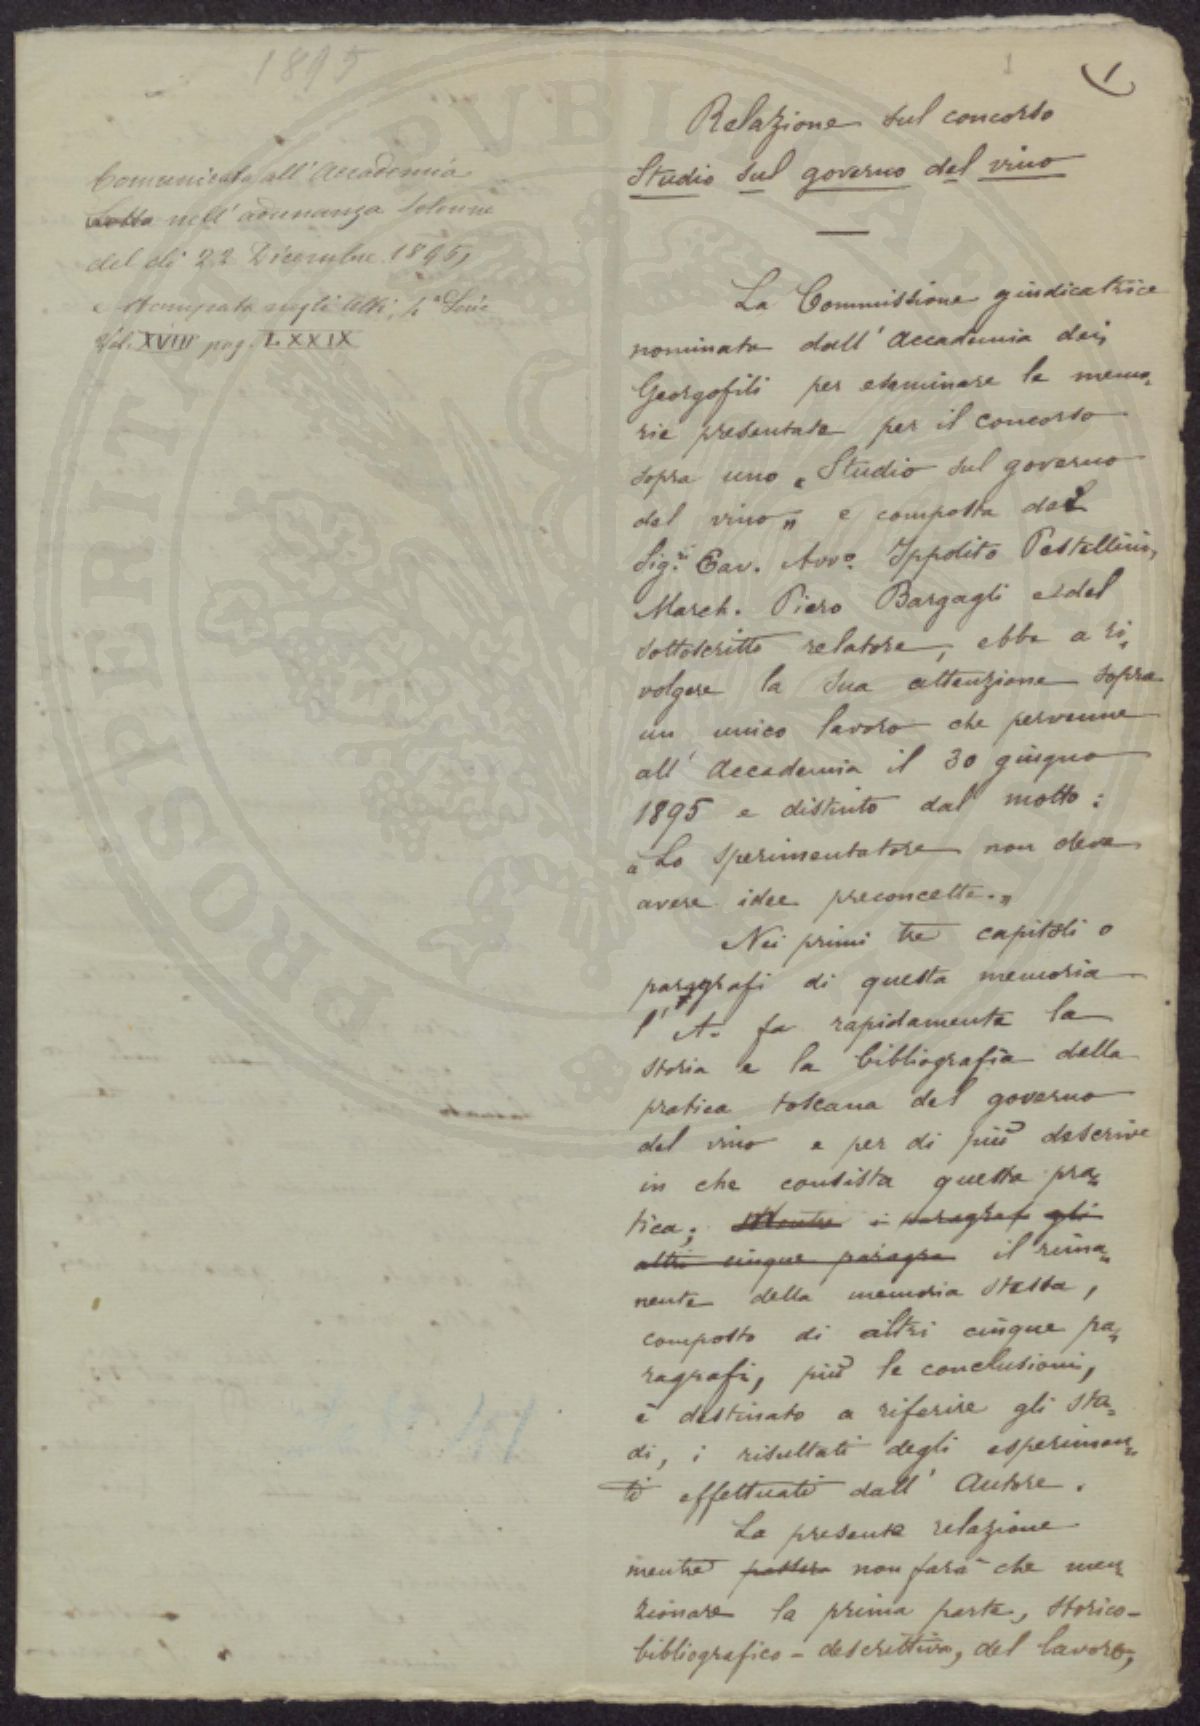 1895
1
1
Comunicata all' Accademia
Letta nell' adunanza solenne
del dì 22 Dicembre 1895,
e stampata negli Atti, 4ª Serie
Vol. XVIII pag. LXXIX
Relazione sul concorso
Studio sul governo del vino
La Commissione giudicatrice
nominata dall' Accademia dei
Georgofili per esaminare le memo-
rie presentate per il concorso
sopra uno "Studio sul governo
del vino" e composta dei
Sig.ri Cav. Avvo. Ippolito Pestellini,
March. Piero Bargagli e del
sottoscritto relatore, ebbe a ri-
volgere la sua attenzione sopra
un unico lavoro che pervenne
all' Accademia il 30 giugno
1895 e distinto dal motto:
"Lo sperimentatore non deve
avere idee preconcette."
Nei primi tre capitoli o
paragrafi di questa memoria
l' A. fa rapidamente la
storia e la bibliografia della
pratica toscana del governo
del vino e per di più descrive
in che consista questa pra-
tica; Mentre i paragrafi gli
altri cinque paragra il rima-
nente della memoria stessa,
composto di altri cinque pa-
ragrafi, più le conclusioni,
è destinato a riferire gli stu-
di, i risultati degli esperimen-
ti effettuati dall' Autore.
La presente relazione
mentre non farà che men-
zionare la prima parte, storico-
bibliografico-descrittiva, del lavoro,
PROSPERITATI PVBLICAE